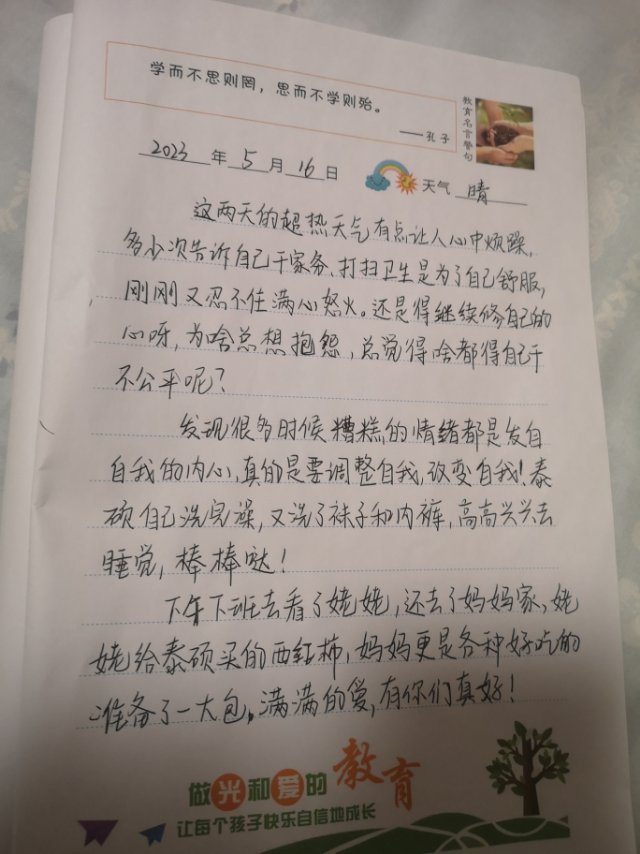 学而不思则罔，思而不学则殆。
——孔子
教育名言警句
2023年5月16日 天气 晴
这两天的超热天气有点让人心中烦躁，
多少次告诉自己干家务、打扫卫生是为了自己舒服，
刚刚又忍不住满心怒火。还是得继续修自己的
心呀，为啥总想抱怨，总觉得啥都得自己干
不公平呢？
发现很多时候糟糕的情绪都是发自
自我的内心，真的是要调整自我，改变自我！泰
硕自己洗完澡，又洗了袜子和内裤，高高兴兴去
睡觉，棒棒哒！
下午下班去看了姥姥，还去了妈妈家，姥
姥给泰硕买的西红柿，妈妈更是各种好吃的
准备了一大包，满满的爱，有你们真好！
做光和爱的教育
让每个孩子快乐自信地成长